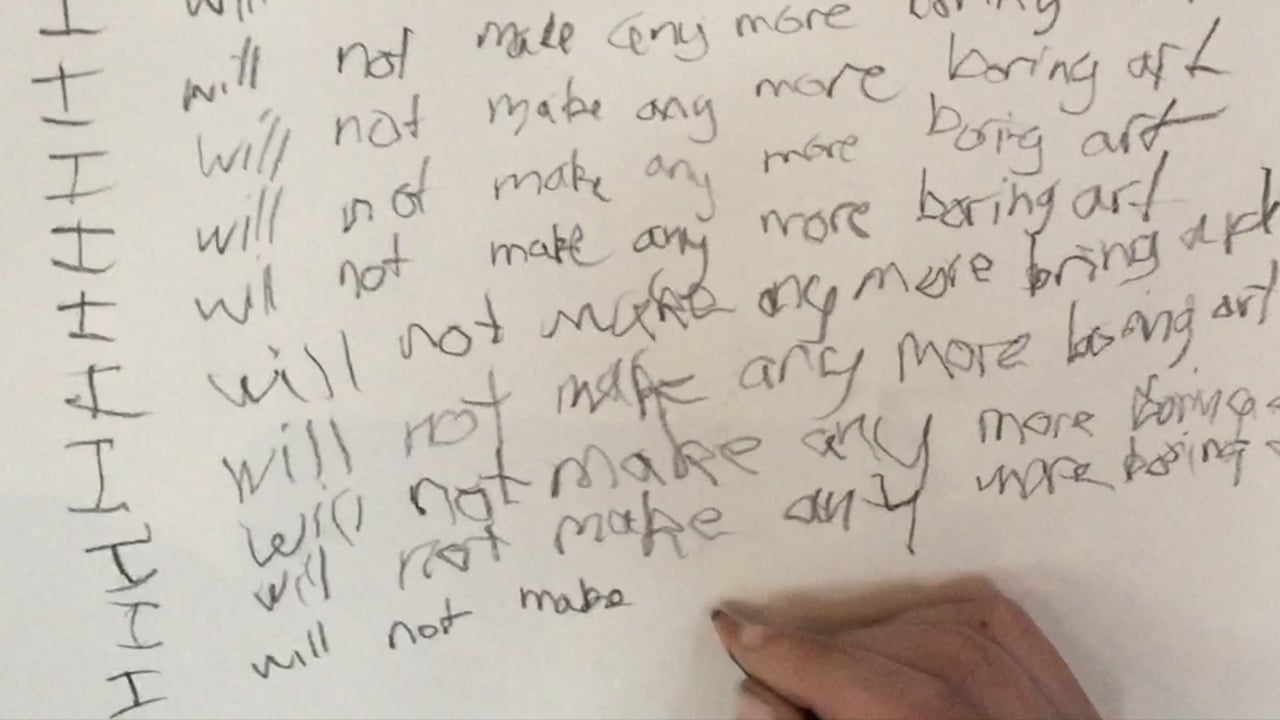 I will
I will not make any more boring
I will not make any more boring art
I will not make any more boring art
I will not make any more boring art
I will not make any more bring art
I will not make any more boring art
I will not make any more boring
I will not make any more boring
I will not make